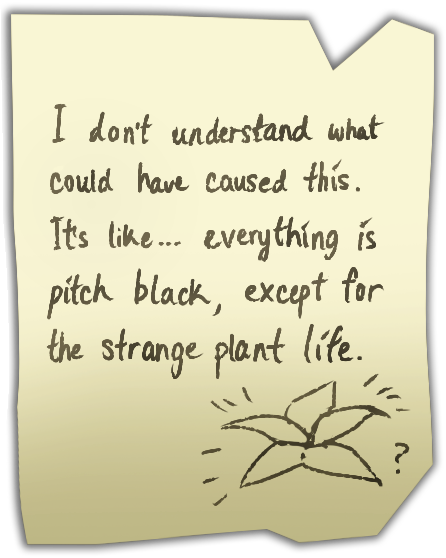 I don't understand what
could have caused this.
It's like... everything is
pitch black, except for
the strange plant life.
?